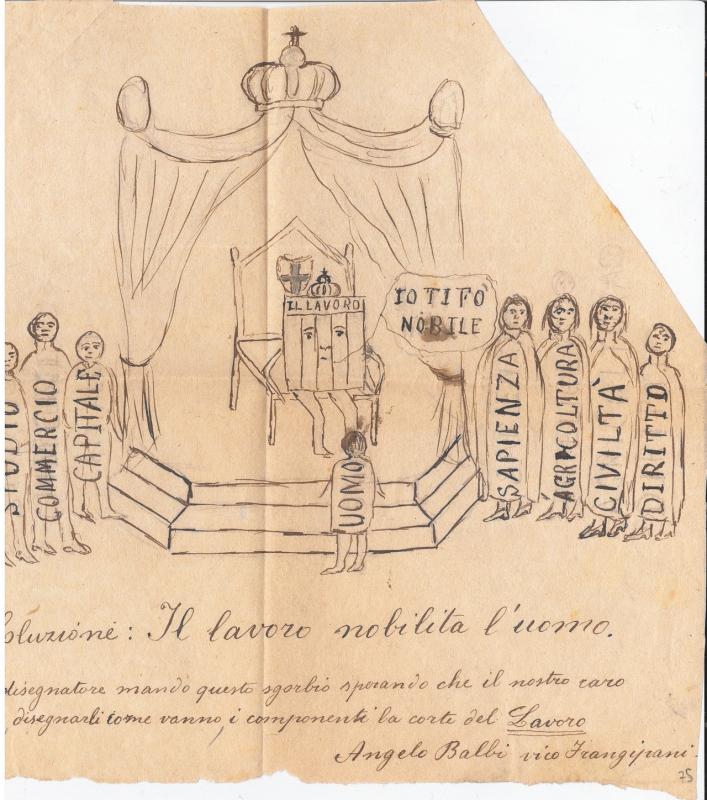 IL LAVORO
IO TI FÒ
NÒBILE
STUDIO
COMMERCIO
CAPITALE
UOMO
SAPIENZA
AGRICOLTURA
CIVILTÀ
DIRITTO
oluzióne: Il lavoro nobilita l'uomo.
disegnatore mando questo sgorbio sperando che il nostro caro
disegnarli come vanno, i componenti la corte del Lavoro
Angelo Balbi vico Frangipani
75